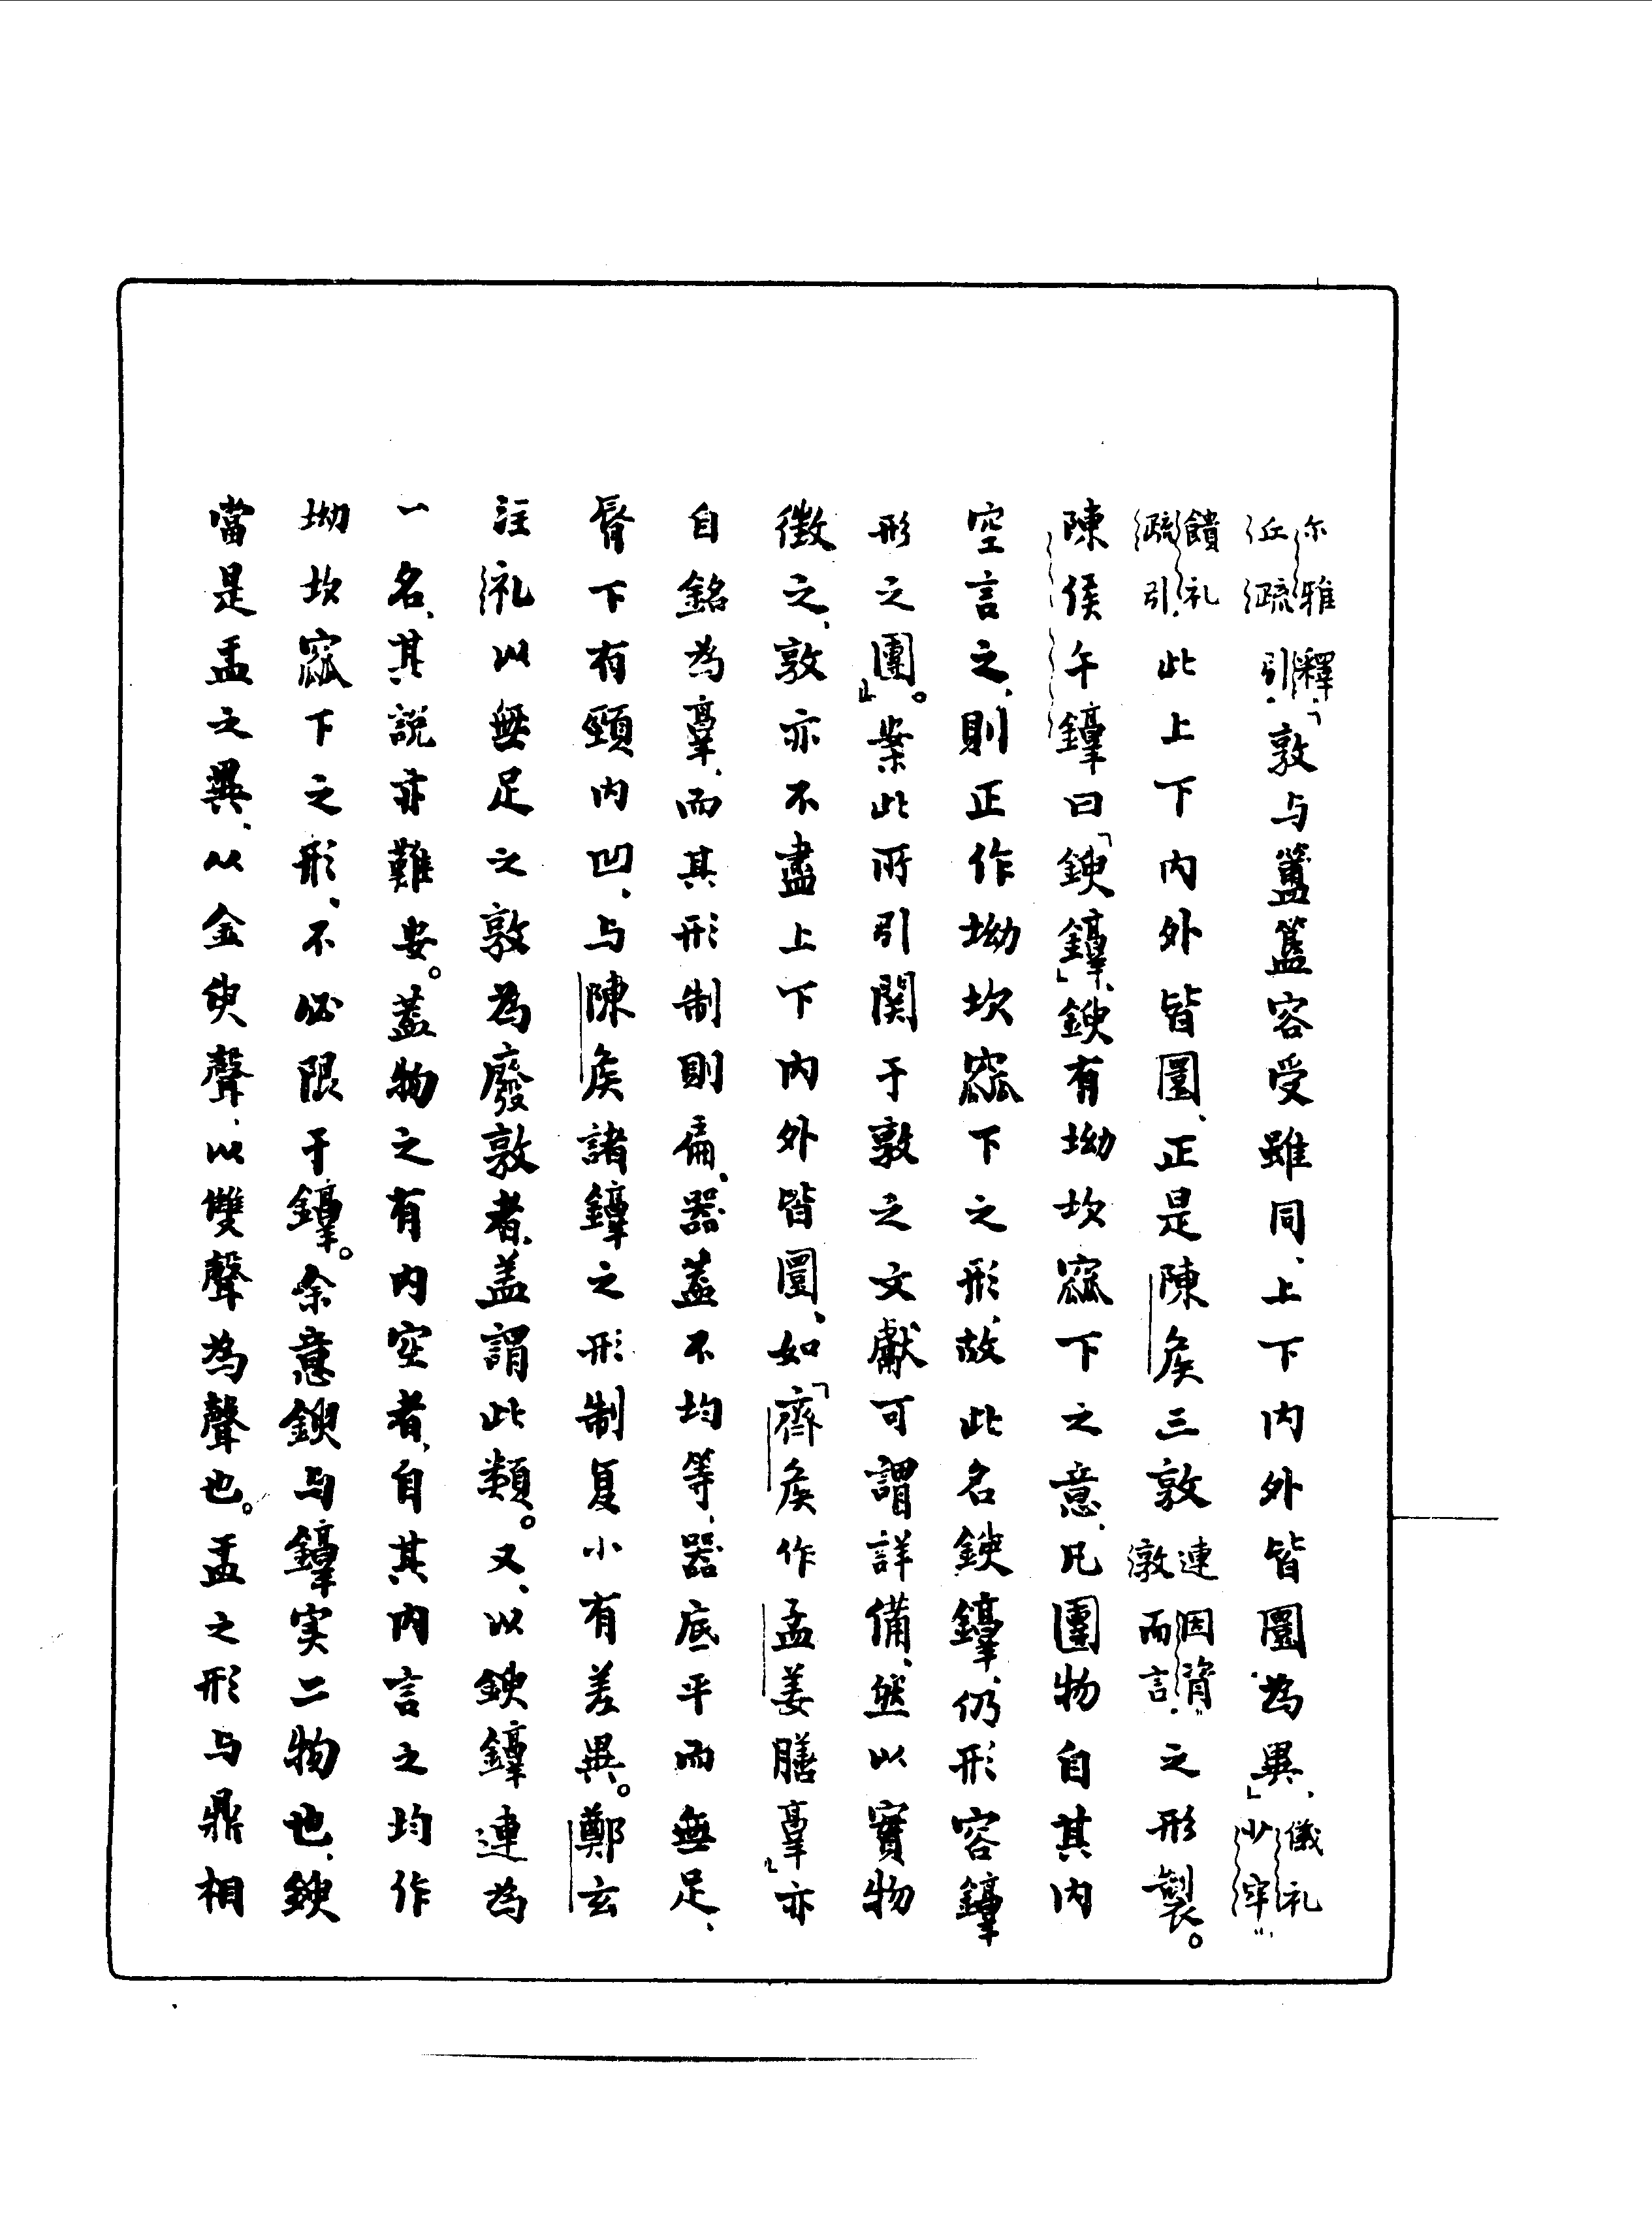 尔雅釋丘疏引、「敦与簠簋容受雖同、上下内外皆圜為異」、儀礼少牢
饋礼疏引、此上下内外皆圜、正是陳矦三敦連因𬛔敦而言、之形製。
陳侯午鐘曰「鍥鐘」、鍥有坳坎窳下之意、凡團物自其内
空言之、則正作坳坎窳下之形、故此名鍥鐘、仍形容鐘
形之團」。案此所引関于敦之文獻可謂詳備、然以實物
徵之、敦亦不盡上下内外皆圜、如「齊矦作孟姜膳𦎫」亦
自銘為𦎫、而其形制則扁、器蓋不均等、器底平而無足、
脣下有頸内凹、与陳矦諸錞之形制复小有差異。鄭玄
註礼以無足之敦為廢敦者、蓋謂此類。又、以鍥錞連為
一名、其説亦難安。蓋物之有内空者、自其内言之均作
坳坎窳下之形、不必限于錞。余意鍥与錞実二物也、鍥
當是盂之異、从金臾聲、以雙聲為聲也。盂之形与鼎相